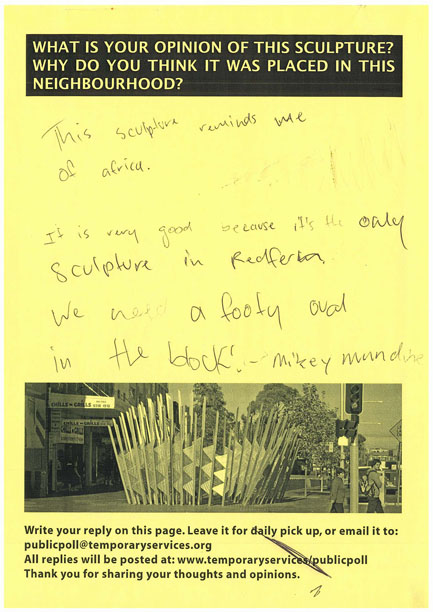 WHAT IS YOUR OPINION OF THIS SCULPTURE?
WHY DO YOU THINK IT WAS PLACED IN THIS
NEIGHBOURHOOD?
This sculpture reminds me
of africa.
It is very good because it's the only
sculpture in Redfern
we need a footy oval
in the block! - mikey mundine
CHILLI GRILLS
Write your reply on this page. Leave it for daily pick up, or email it to:
publicpoll@temporaryservices.org
All replies will be posted at: www.temporaryservices/publicpoll
Thank you for sharing your thoughts and opinions.